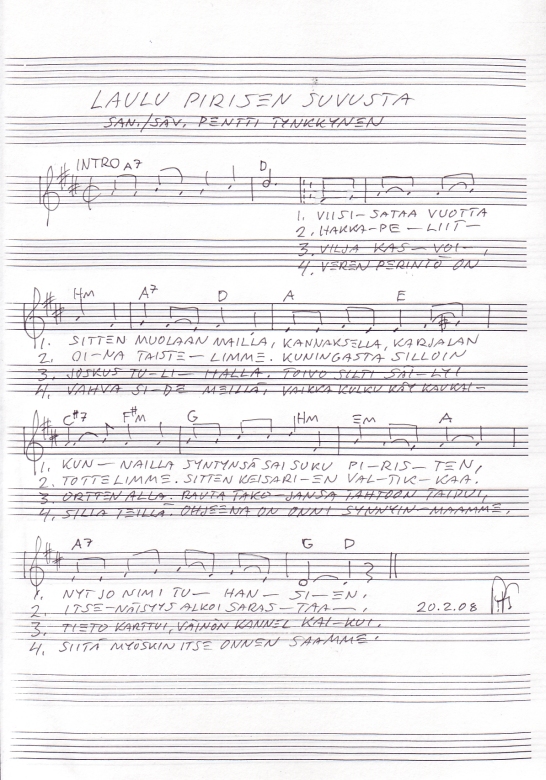 LAULU PIRISEN SUVUSTA
SAN./SÄV. PENTTI TYNKKYNEN
INTRO A7 D
1. VIISI-SATAA VUOTTA
2. HAKKA-PE-LIIT-
3. VILJA KAS-VOI-,
4. VEREN PERINTÖ ON
Hm A7 D A E
1. SITTEN MUOLAAN MAILLA, KANNAKSELLA, KARJALAN
2. OI-NA TAISTE-LIMME. KUNINGASTA SILLOIN
3. JOSKUS TU-LI HALLA. TOIVO SILTI SÄI-LYI
4. VAHVA SI-DE MEILLÄ, VAIKKA KULKU KÄY KAUKAI-
C#7 F#m G Hm Em A
1. KUN-NAILLA SYNTYNSÄ SAI SUKU PI-RIS-TEN,
2. TOTTELIMME. SITTEN KEISARI-EN VAL-TIK-KAA.
3. ORTTEN ALLA. RAUTA TAKO-JANSA TAHTOON TAIPUI,
4. SILLA TEILLÄ. OHJEENA ON ONNI SYNNYIN-MAAMME,
A7 G D
1. NYT JO NIMI TU-HAN-SI-EN.
2. ITSE-NÄISYYS ALKOI SARAS-TAA-,
20.2.08
3. TIETO KARTTUI, VÄINÖN KANNEL KAI-KUI.
4. SIITÄ MYÖSKIN ITSE ONNEN SAAMME.